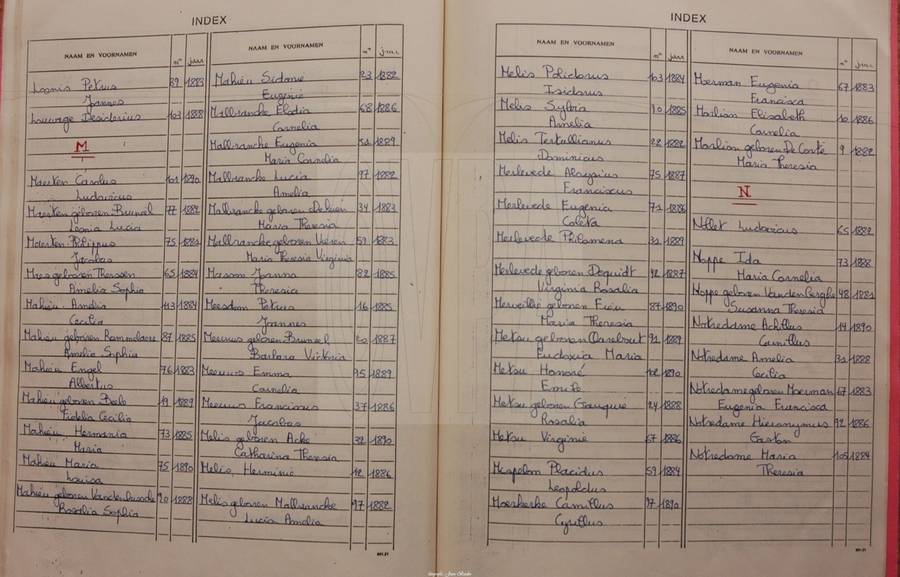 INDEX
NAAM EN VOORNAMEN n° jaar
Loonis Petrus 89 1883
Joannes
Louwage Desiderius 103 1888
M
Maerten Carolus 101 1890
Ludovicus
Maerten geboren Bruneel 77 1884
Leonia Lucia
Maerten Philippus 75 1882
Jacobus
Maes geboren Therssen 65 1884
Amelia Sophia
Mahieu Amelia 113 1884
Cecilia
Mahieu geboren Rammelaere 87 1885
Amelia Sophia
Mahieu Engel 76 1883
Albertus
Mahieu geboren Beele 19 1889
Fidelia Cecilia
Mahieu Hermania 73 1885
Maria
Mahieu Maria 75 1890
Louisa
Mahieu geboren Vandenbussche 20 1888
Rosalia Sophia
NAAM EN VOORNAMEN n° jaar
Mahieu Sidonie 23 1882
Eugenie
Mallrancke Elodia 68 1886
Cornelia
Mallrancke Eugenia 51 1889
Maria Cornelia
Mallrancke Lucia 97 1882
Amelia
Mallrancke geboren 34 1883
Maria Theresia
Mallrancke geboren Vieren 59 1883
Maria Theresia Virginia
Masson Joanna 82 1885
Theresia
Meesdom Petrus 16 1885
Joannes
Meeuws geboren Bruneel 20 1887
Barbara Victoria
Meeuws Emma 95 1889
Cornelia
Meeuws Franciscus 37 1886
Jacobus
Melis geboren Acke 32 1890
Catharina Theresia
Melis Herminie 12 1886
Melis geboren Mallrancke 97 1882
Lucia Amelia
INDEX
NAAM EN VOORNAMEN n° jaar
Melis Polidorus 103 1884
Isidorus
Melis Sylvia 10 1885
Amelia
Melis Tertullianus 22 1882
Dominicus
Merlevede Aloysius 75 1887
Franciscus
Merlevede Eugenia 71 1886
Coleta
Merlevede Philomena 31 1889
Merlevede geboren Dequidt 92 1887
Virginia Rosalia
Merveillie geboren Fieu 87 1890
Maria Theresia
Metsu geboren Werbrouck 91 1889
Eudoxia Maria
Metsu Honoré 12 1890
Emile
Metsu geboren Ganquié 24 1888
Rosalia
Metsu Virginie 67 1886
Mespelon Placidus 59 1884
Leopoldus
Moerkerke Camillus 97 1890
Cyrillus
NAAM EN VOORNAMEN n° jaar
Moerman Eugenia 67 1883
Francisca
Morlion Elisabeth 10 1886
Cornelia
Morlion geboren De Conte 9 1882
Maria Theresia
N
Nollet Ludovicus 65 1882
Noppe Ida 73 1888
Maria Cornelia
Noppe geboren Vandenberghe 48 1882
Susanna Theresia
Notredame Achillus 14 1890
Camillus
Notredame Amelia 31 1888
Cecilia
Notredame geboren Moerman 67 1883
Eugenia Francisca
Notredame Hieronymus 92 1886
Gaston
Notredome Maria 105 1884
Theresia